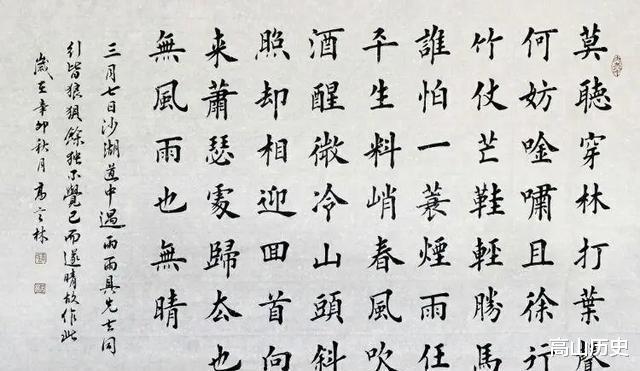 莫聽穿林打葉聲
何妨唫嘯且徐行
竹仗芒鞋輕勝馬
誰怕一蓑煙雨任
平生料峭春風吹
酒醒微冷山頭斜
照却相迎回首向
来蕭瑟處歸去也
無風雨也無晴
三月七日沙湖道中遇雨雨具先去同
引皆狼狽餘獨不覺已而遂晴故作此
歲在辛卯秋月高言林
高山历史